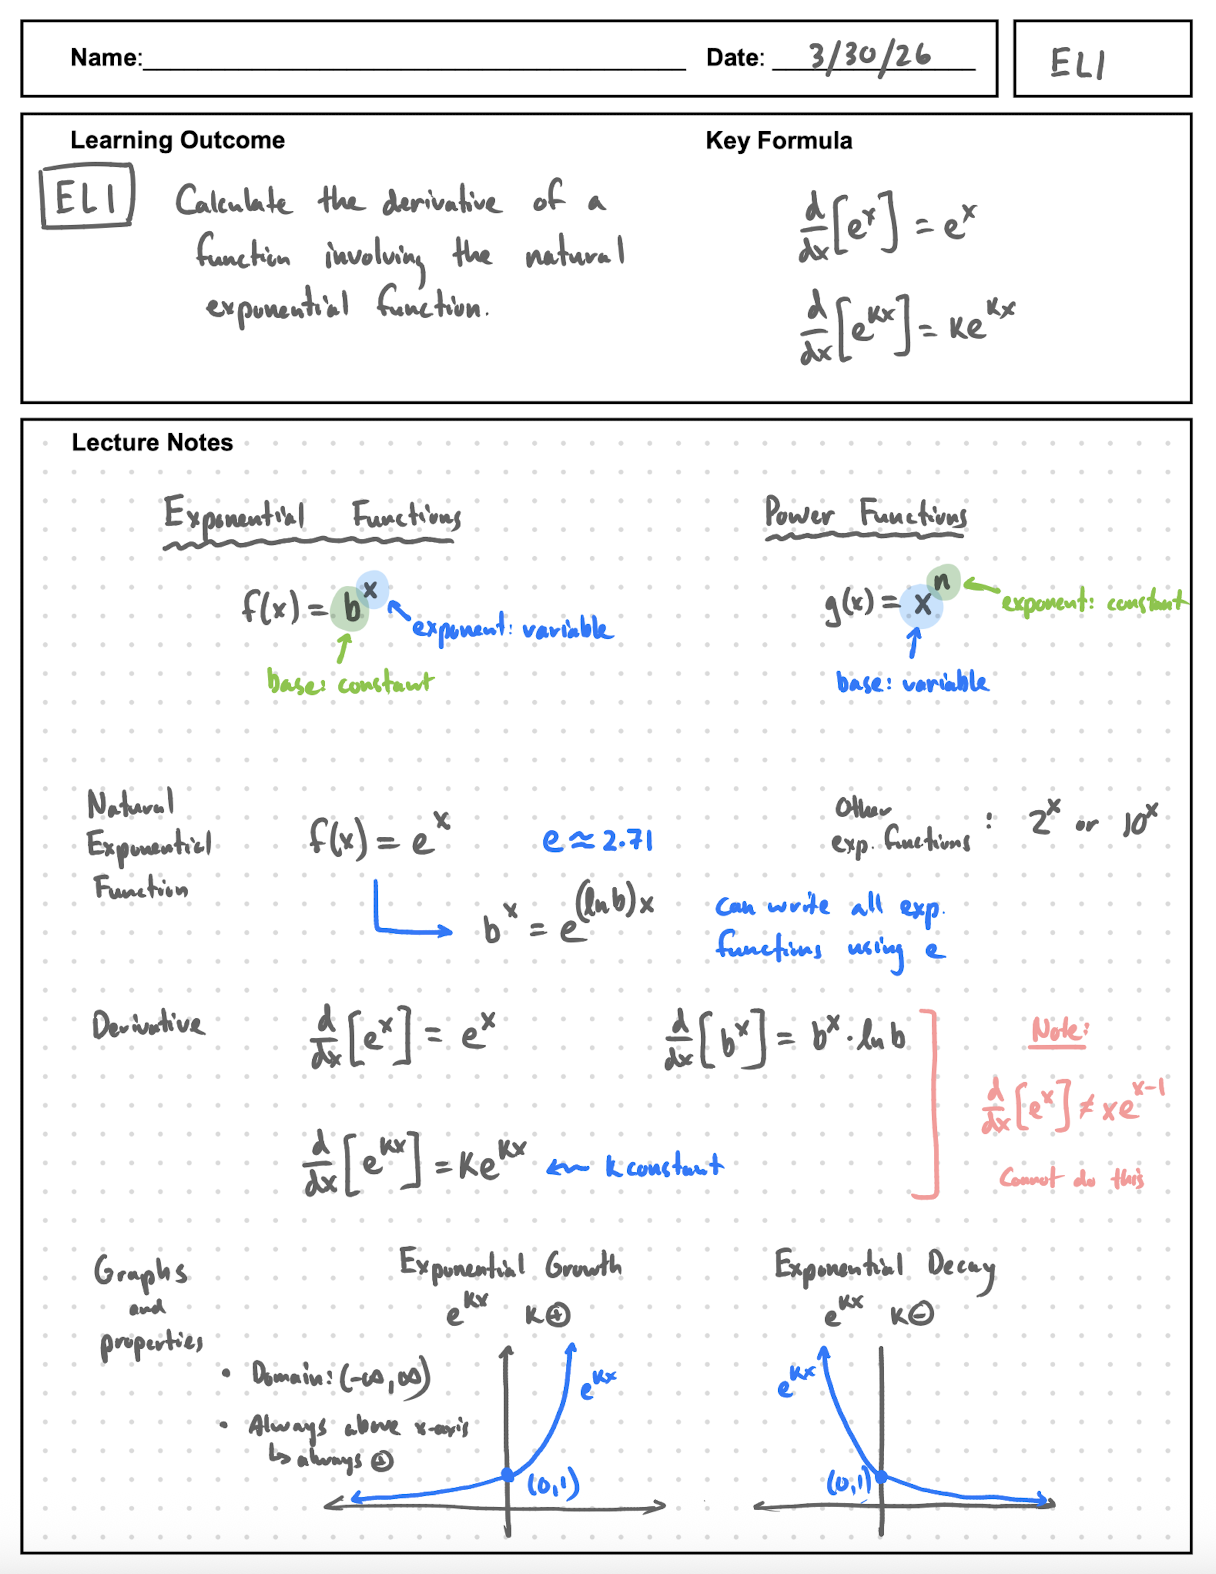 Name: Date: 3/30/26 EL1
Learning Outcome
Key Formula
EL1 Calculate the derivative of a
function involving the natural
exponential function.
d/dx[e^x] = e^x
d/dx[e^(kx)] = ke^(kx)
Lecture Notes
Exponential Functions
f(x) = b^x
exponent: variable
base: constant
Power Functions
g(x) = x^n
exponent: constant
base: variable
Natural
Exponential
Function
f(x) = e^x
e ≈ 2.71
Other
exp. functions : 2^x or 10^x
b^x = e^((ln b)x)
can write all exp.
functions using e
Derivative
d/dx[e^x] = e^x
d/dx[b^x] = b^x · ln b
d/dx[e^(kx)] = Ke^(kx) ← k constant
Note:
d/dx[e^x] ≠ xe^(x-1)
Cannot do this
Graphs
and
properties
• Domain: (-∞, ∞)
• Always above x-axis
↳ always ⊕
Exponential Growth
e^(kx) K⊕
e^(kx)
(0,1)
Exponential Decay
e^(kx) K⊖
e^(kx)
(0,1)